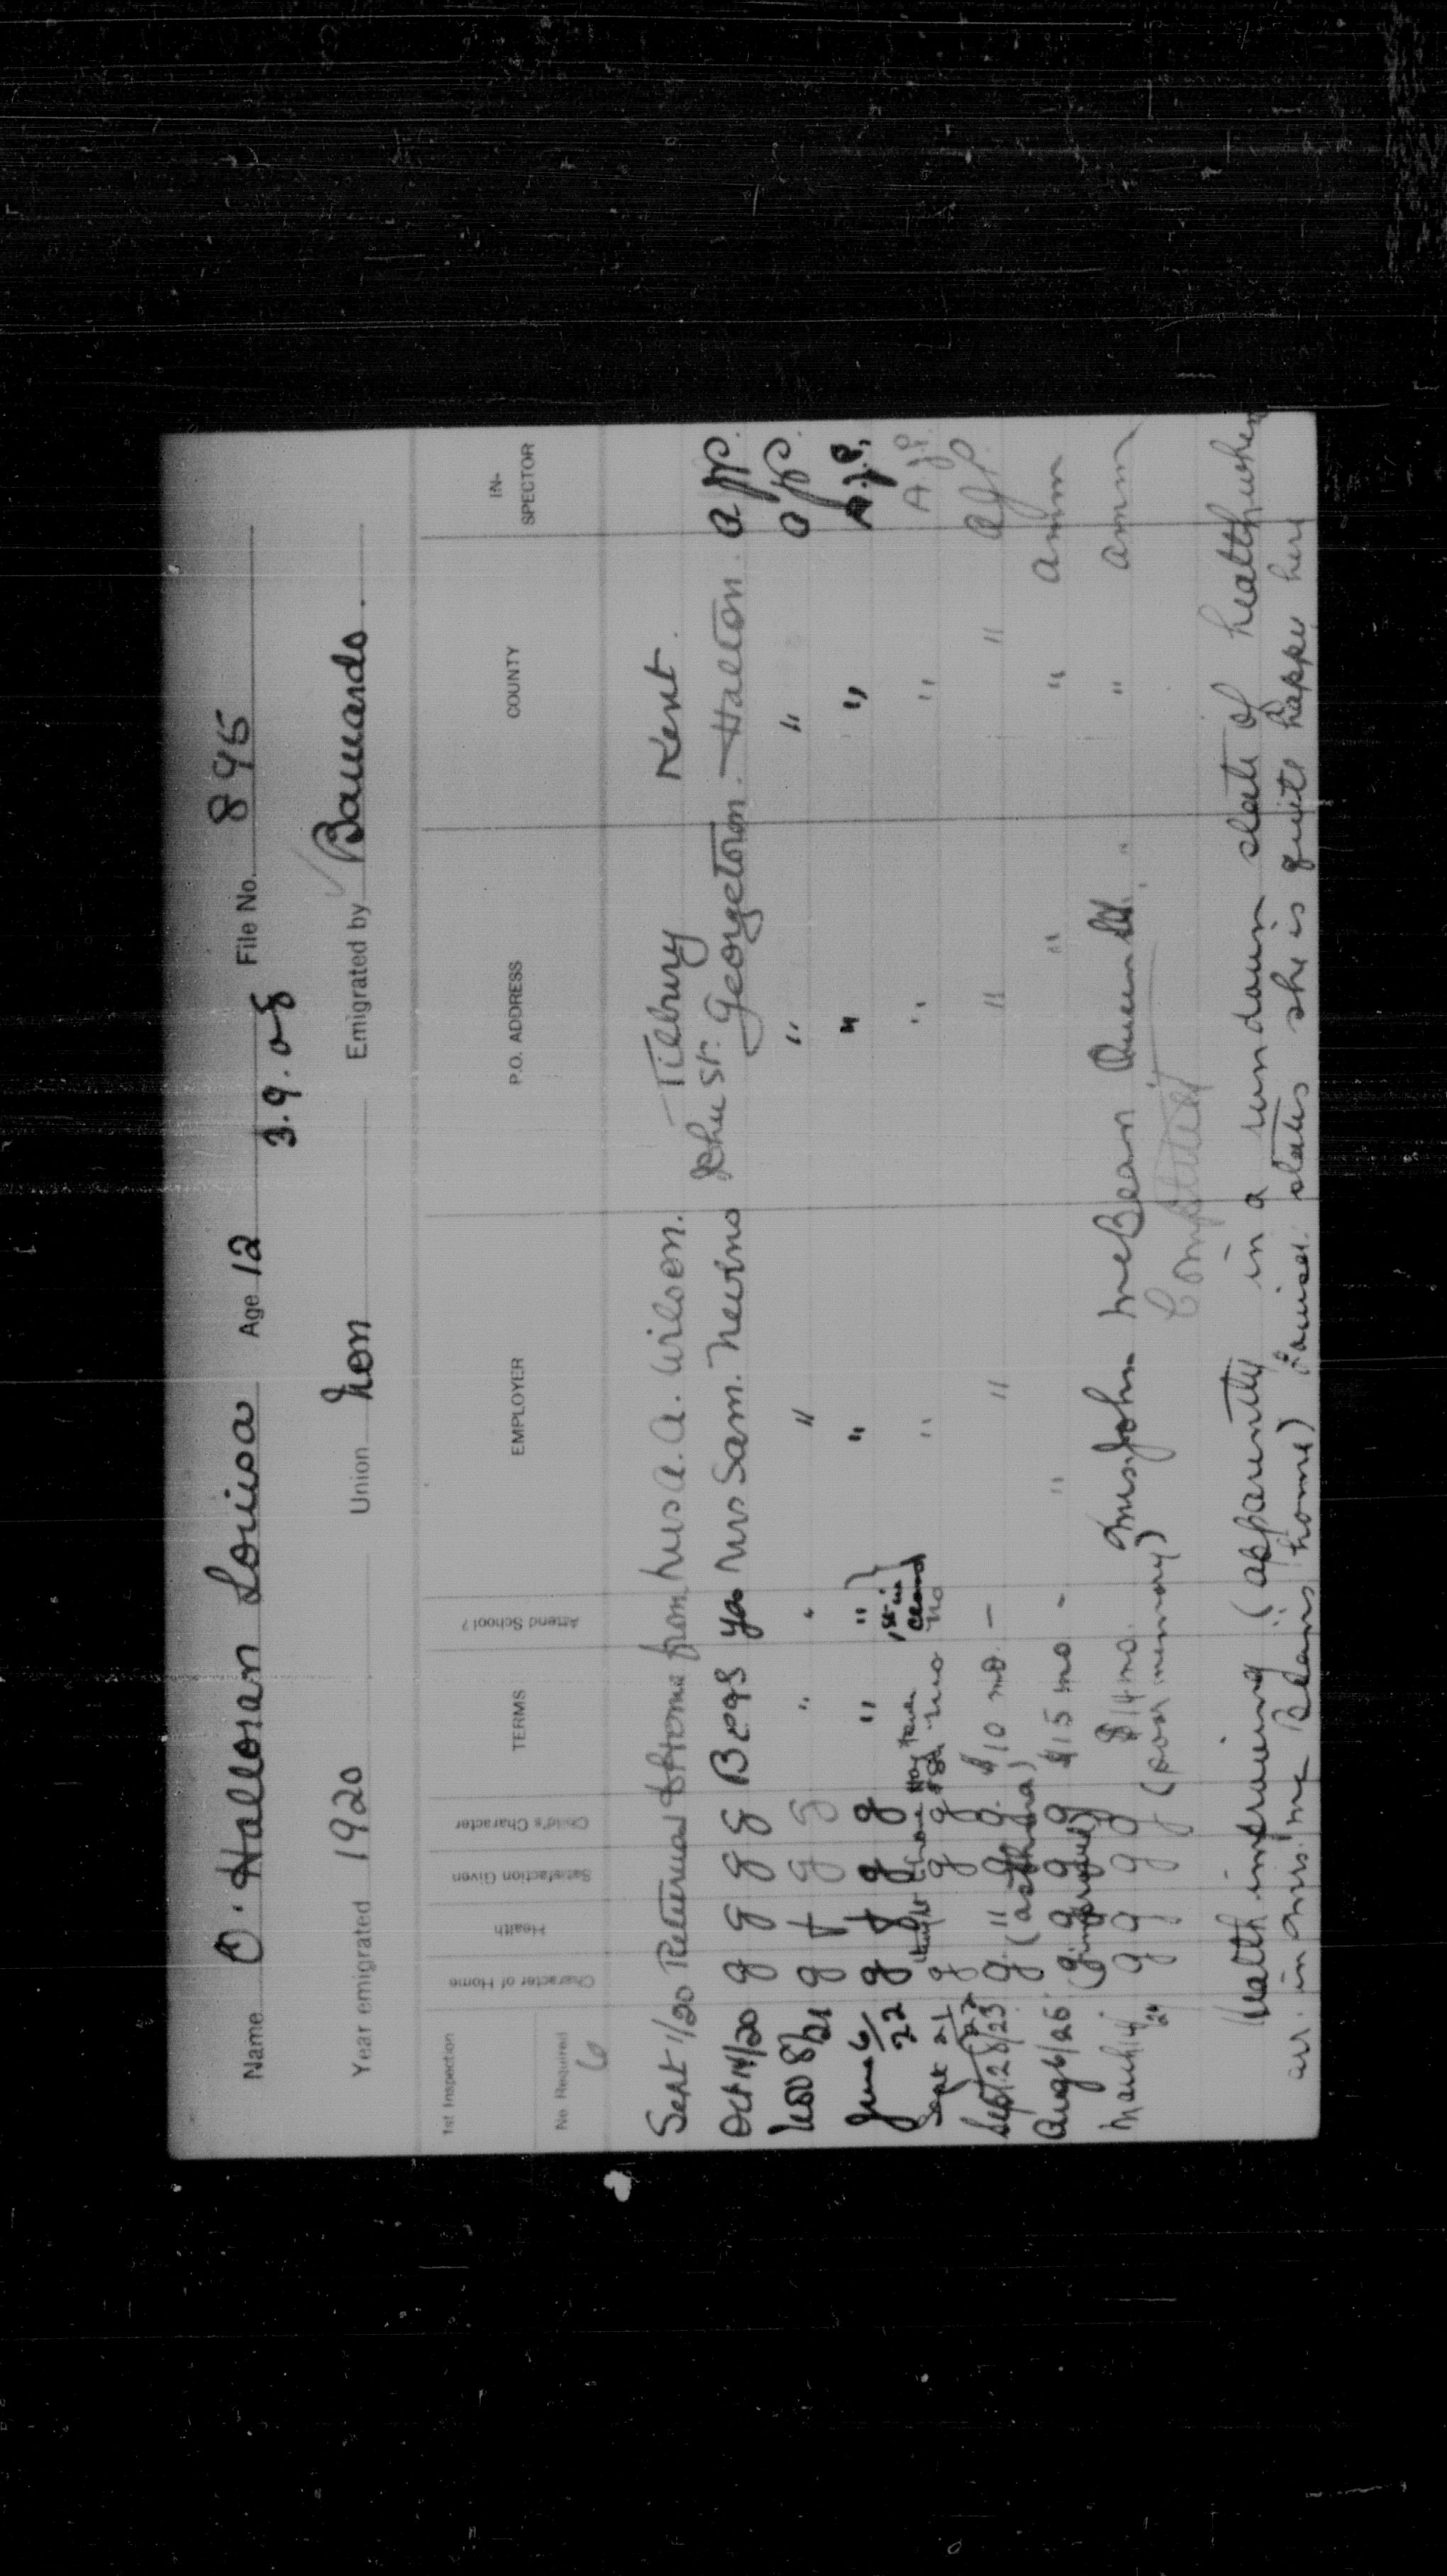 Name O'Halloran Louisa Age 12 File No. 895
3.9.08
Year emigrated 1920 Union Non Emigrated by Barnardo.
1st Inspection Character of Home Health Satisfaction Given Child's Character TERMS Attend School? EMPLOYER P.O. ADDRESS COUNTY IN-SPECTOR
No. Required 6
Sept 1/20 Returned to Home from Mrs A. A. Wilson. Tilbury Kent.
Oct 14/20 g g g g B & S yes Mrs Sam. Nevins John St. Georgetown. Halton. A.J.P.
Nov 8/21 g f g g " " " " " A.J.P.
June 6/22 g f g g " " " " " A.J.P.
1st in Class
Hay Fever
Sept 21/22 g g g mo no " " " A.J.P.
Sept 28/23 g " g g. $10 mo. – " " " A.J.P.
(asthma)
Aug 6/25 g g g g $15 mo – " " " A.M.M.
(improved)
March 4/26 g g g g $14 mo. Mrs. John McBean Queen St. " " A.M.M.
(poor memory)
Completed
Health improving (apparently in a run down state of health when
arr. in Mrs. Mc Beans home) Louisa states she is quite happy here